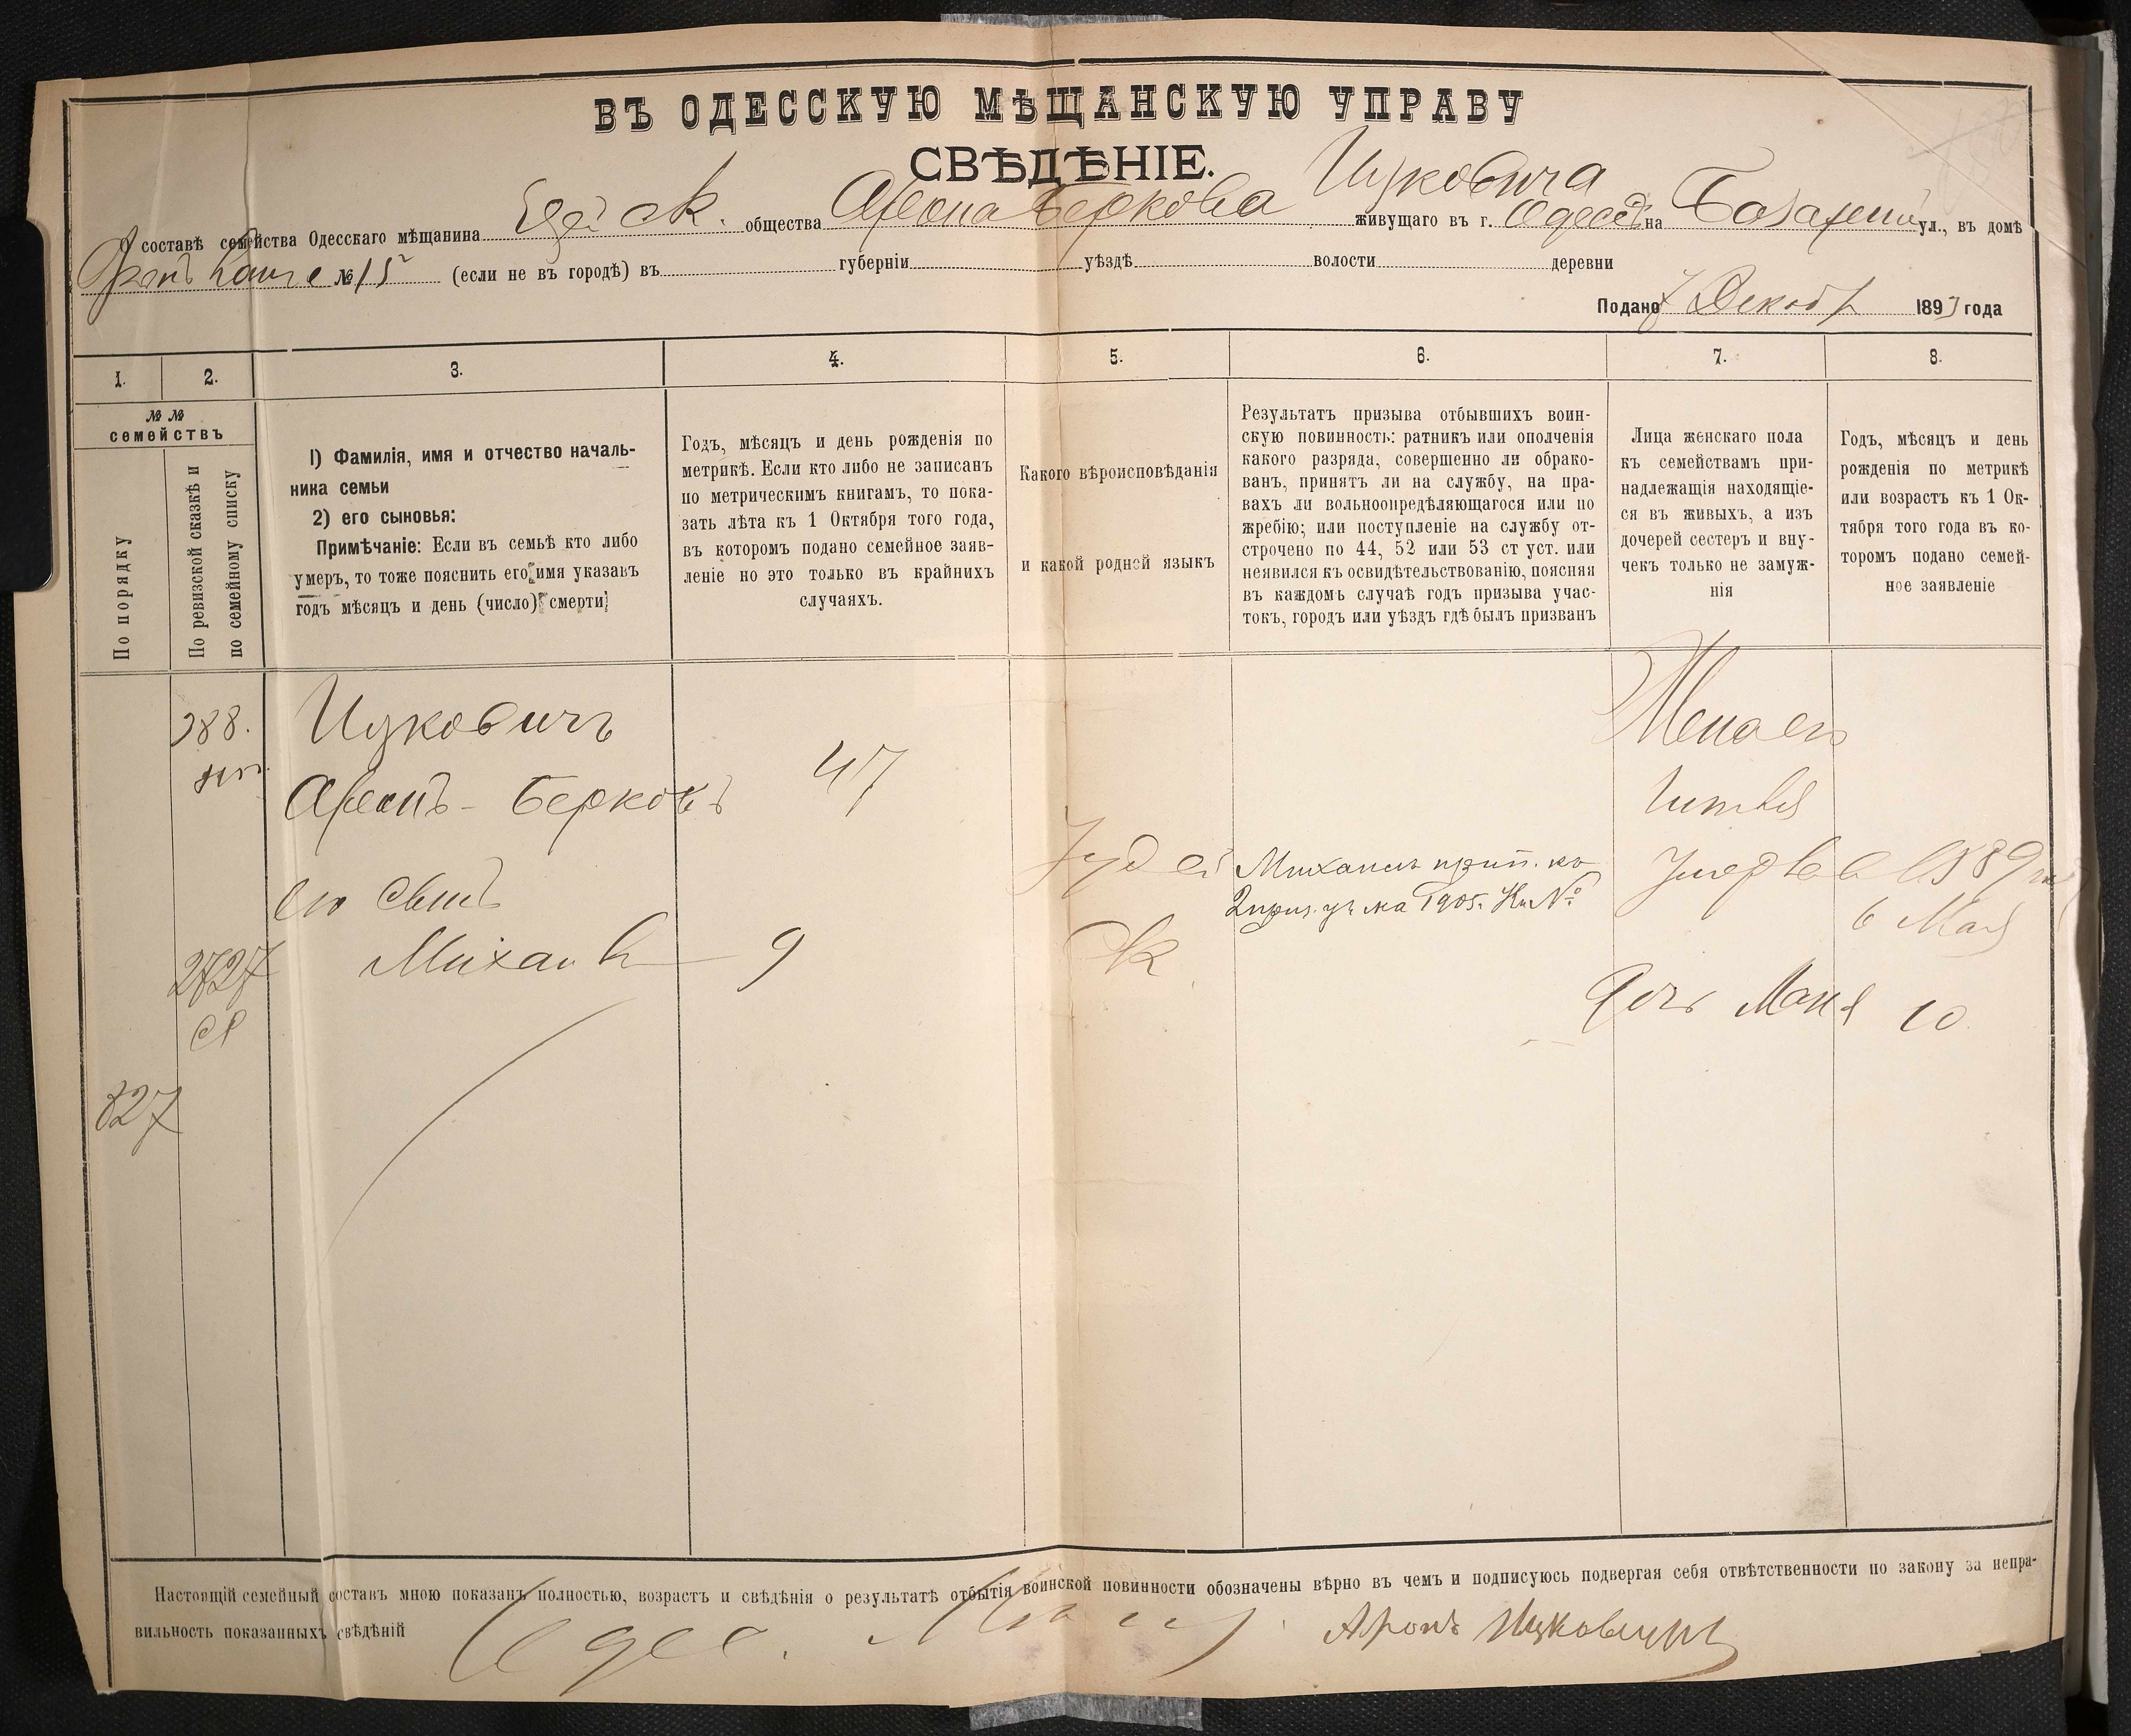 ВЪ ОДЕССКУЮ МѢЩАНСКУЮ УПРАВУ
СВѢДѢНІЕ.
О составѣ семейства Одесскаго мѣщанина общества Арона Беркова Ицковича живущаго въ г. Одессѣ на Базарной ул., въ домѣ
№ 15 (если не въ городѣ) въ губерніи уѣздѣ волости деревни
Подано 7 Декабр 1893 года
1. 2. 3. 4. 5. 6. 7. 8.
№ №
семействъ
По порядку
По ревизской сказкѣ и
по семейному списку
1) Фамилія, имя и отчество началь-
ника семьи
2) его сыновья:
Примѣчаніе: Если въ семьѣ кто либо
умеръ, то тоже пояснить его имя указавъ
годъ мѣсяцъ и день (число) смерти
Годъ, мѣсяцъ и день рожденія по
метрикѣ. Если кто либо не записанъ
по метрическимъ книгамъ, то пока-
зать лѣта къ 1 Октября того года,
въ которомъ подано семейное заяв-
леніе но это только въ крайнихъ
случаяхъ.
Какого вѣроисповѣданія
и какой родной языкъ
Результатъ призыва отбывшихъ воин-
скую повинность: ратникъ или ополченія
какого разряда, совершенно ли обрако-
ванъ, принятъ ли на службу, на пра-
вахъ ли вольноопредѣляющагося или по
жребію; или поступленіе на службу от-
строчено по 44, 52 или 53 ст уст. или
неявился къ освидѣтельствованію, поясняя
въ каждомъ случаѣ годъ призыва учас-
токъ, городъ или уѣздъ гдѣ былъ призванъ
Лица женскаго пола
къ семействамъ при-
надлежащія находящіе-
ся въ живыхъ, а изъ
дочерей сестеръ и вну-
чекъ только не замуж-
нія
Годъ, мѣсяцъ и день
рожденія по метрикѣ
или возрастъ къ 1 Ок-
тября того года въ ко-
торомъ подано семей-
ное заявленіе
388.
Ицковичъ
Аронъ-Берковъ
47
Жена его
его сынъ
Іудей
ск
Михаилъ прип. къ
2 приз. уч. на 1905. К. №
Умерла в 1889
6 Мая
2727
Михаил
9
Дочь Маня 10
827
Настоящій семейный составъ мною показанъ полностью, возрастъ и свѣдѣнія о результатѣ отбытія воинской повинности обозначены вѣрно въ чемъ и подписуюсь подвергая себя отвѣтственности по закону за непра-
вильность показанныхъ свѣдѣній Одес. Мѣщ. Аронъ Ицковичъ